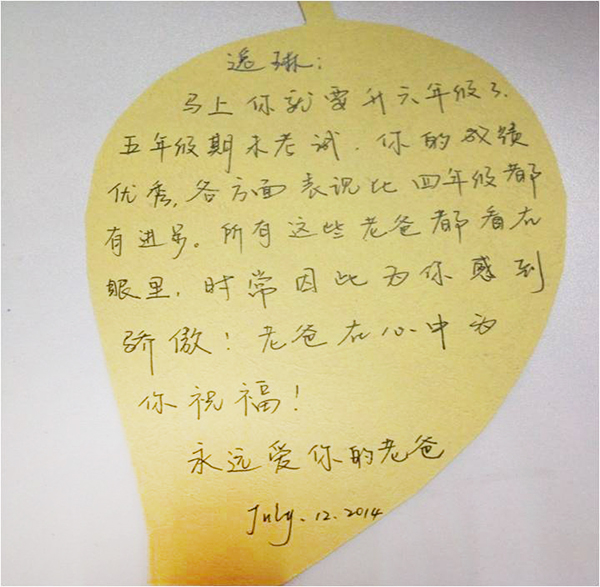 逸琳：
马上你就要升六年级了.
五年级期末考试.你的成绩
优秀,各方面表现比四年级都
有进步。所有这些老爸都看在
眼里.时常因此为你感到
骄傲！老爸在心中为
你祝福！
永远爱你的老爸
July.12.2014